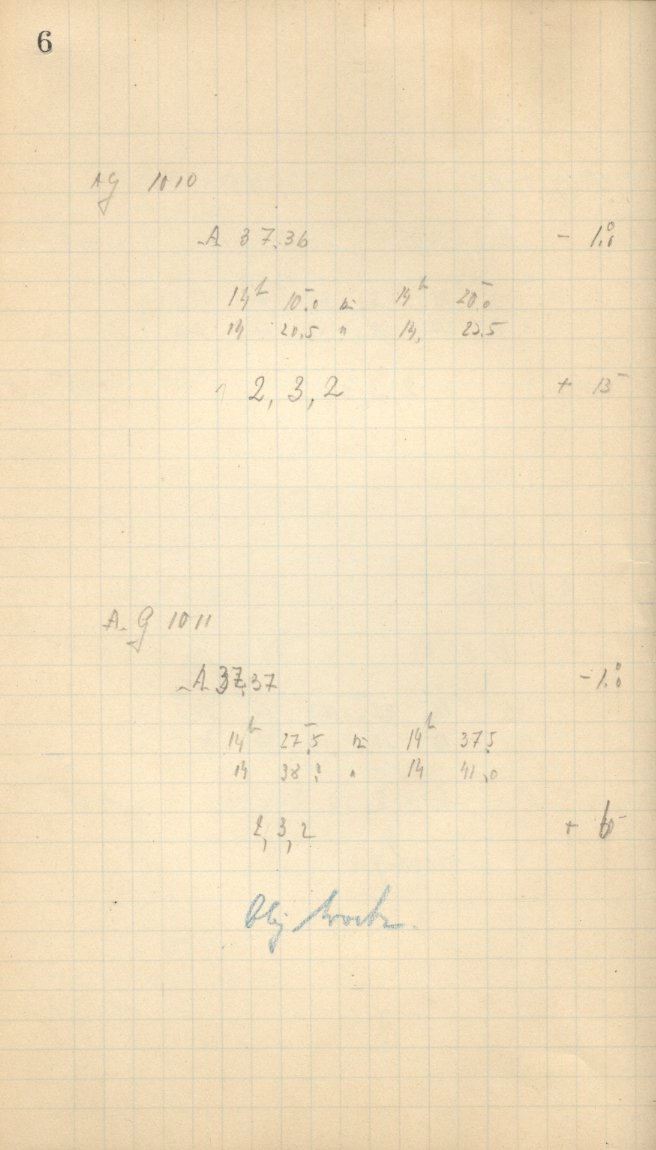 6
AG 1010
A 37.36 - 1.°0
14h 15.0 14h 20.0
14 20.5 " 14 22.5
2, 3, 2 + 15
A.G 1011
A 37.37 - 1.°0
14h 27.5 14h 37.5
14 38 " 14 41.0
2, 3, 2 +